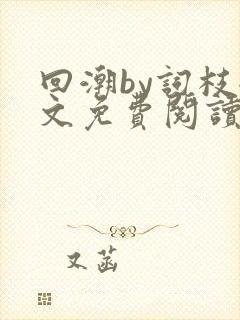 回潮by詞枝
文免費閱讀
又菡